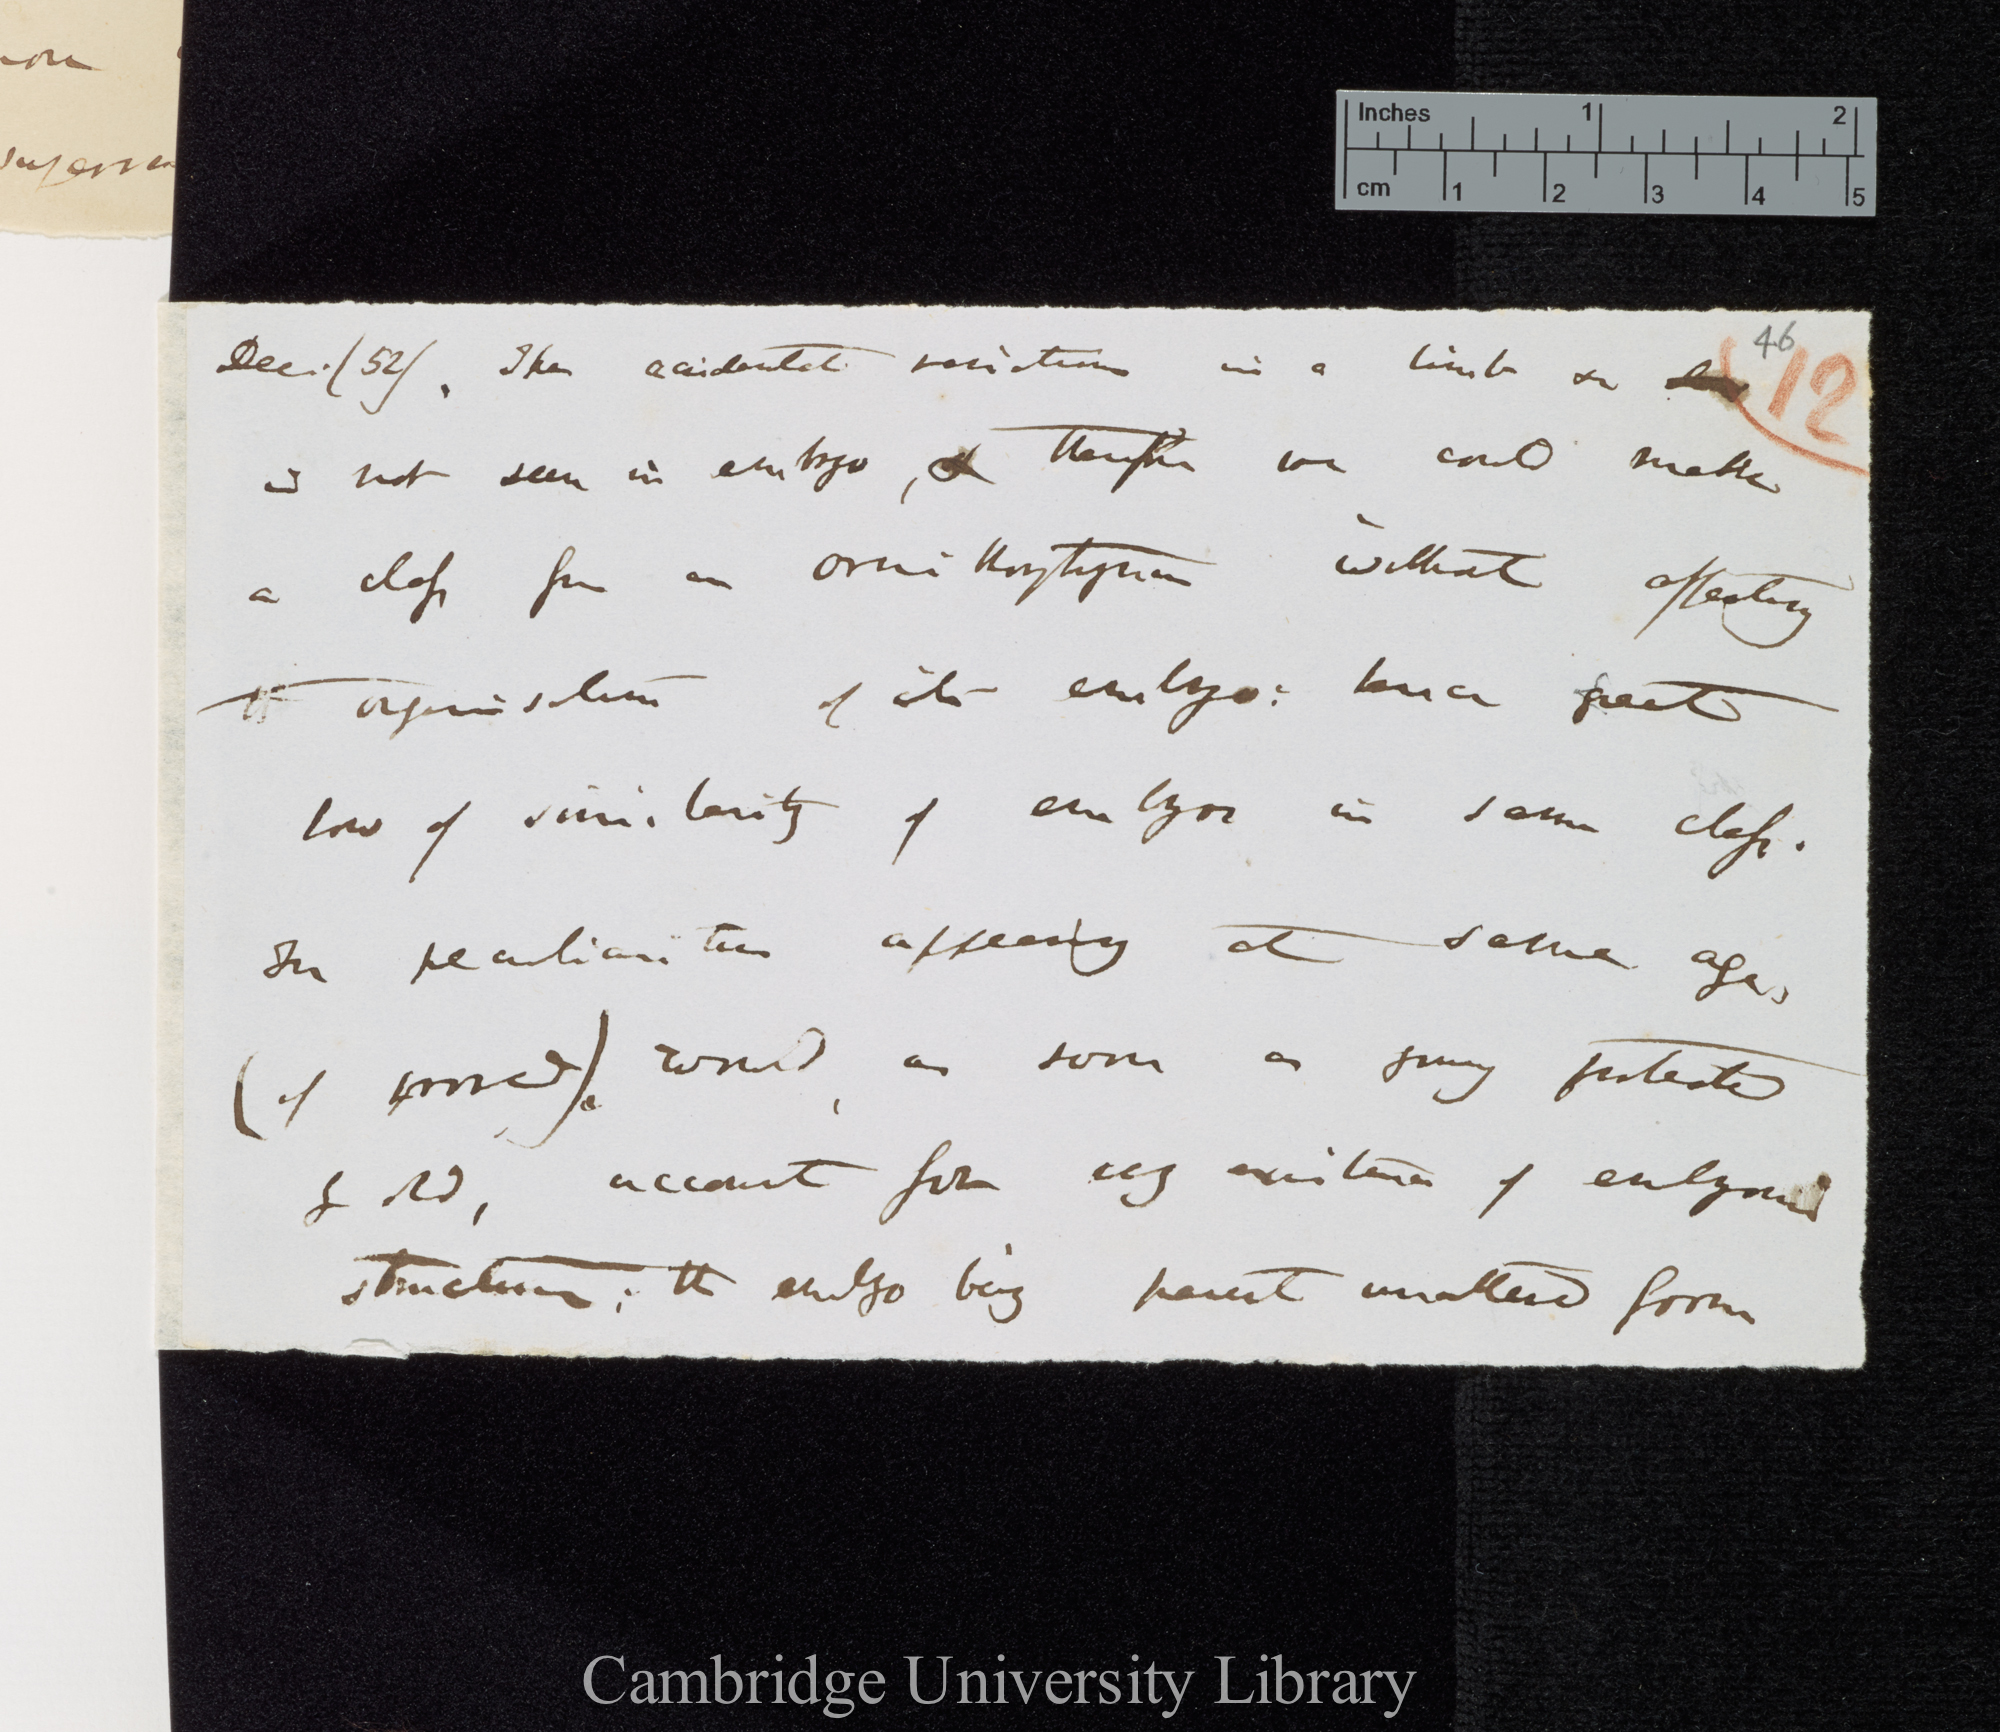 46
12
Dec. /52/. The accidental variation in a limb or
is not seen in embryo, & therefore we could make
a class from an ornithorhynchus without affecting
the organisation of its embryo: hence great
law of similarity of embryos in same class.
The peculiarities appearing at same age,
(if proved). would, as soon as young protected
by old, account for any existence of embryonic
structure; the embryo being parent unaltered form
Inches 1 2
cm 1 2 3 4 5
Cambridge University Library